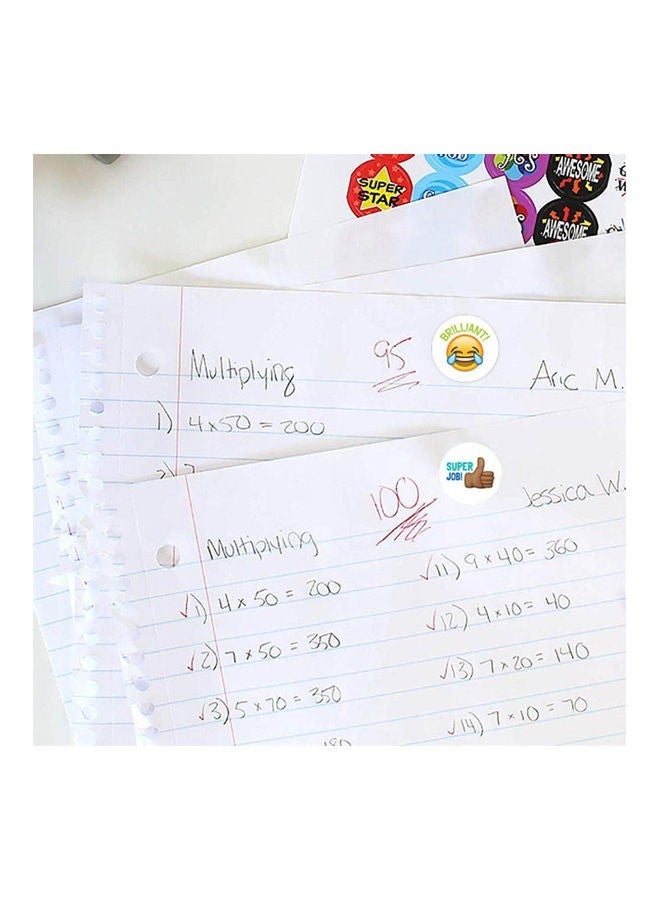 SUPER
STAR
AWESOME
AWESOME
BRILLIANT!
Multiplying 95 Aric M.
1) 4 x 50 = 200
SUPER
JOB!
Multiplying 100 Jessica W.
1) 4 x 50 = 200
2) 7 x 50 = 350
3) 5 x 70 = 350
180
11) 9 x 40 = 360
12) 4 x 10 = 40
13) 7 x 20 = 140
14) 7 x 10 = 70